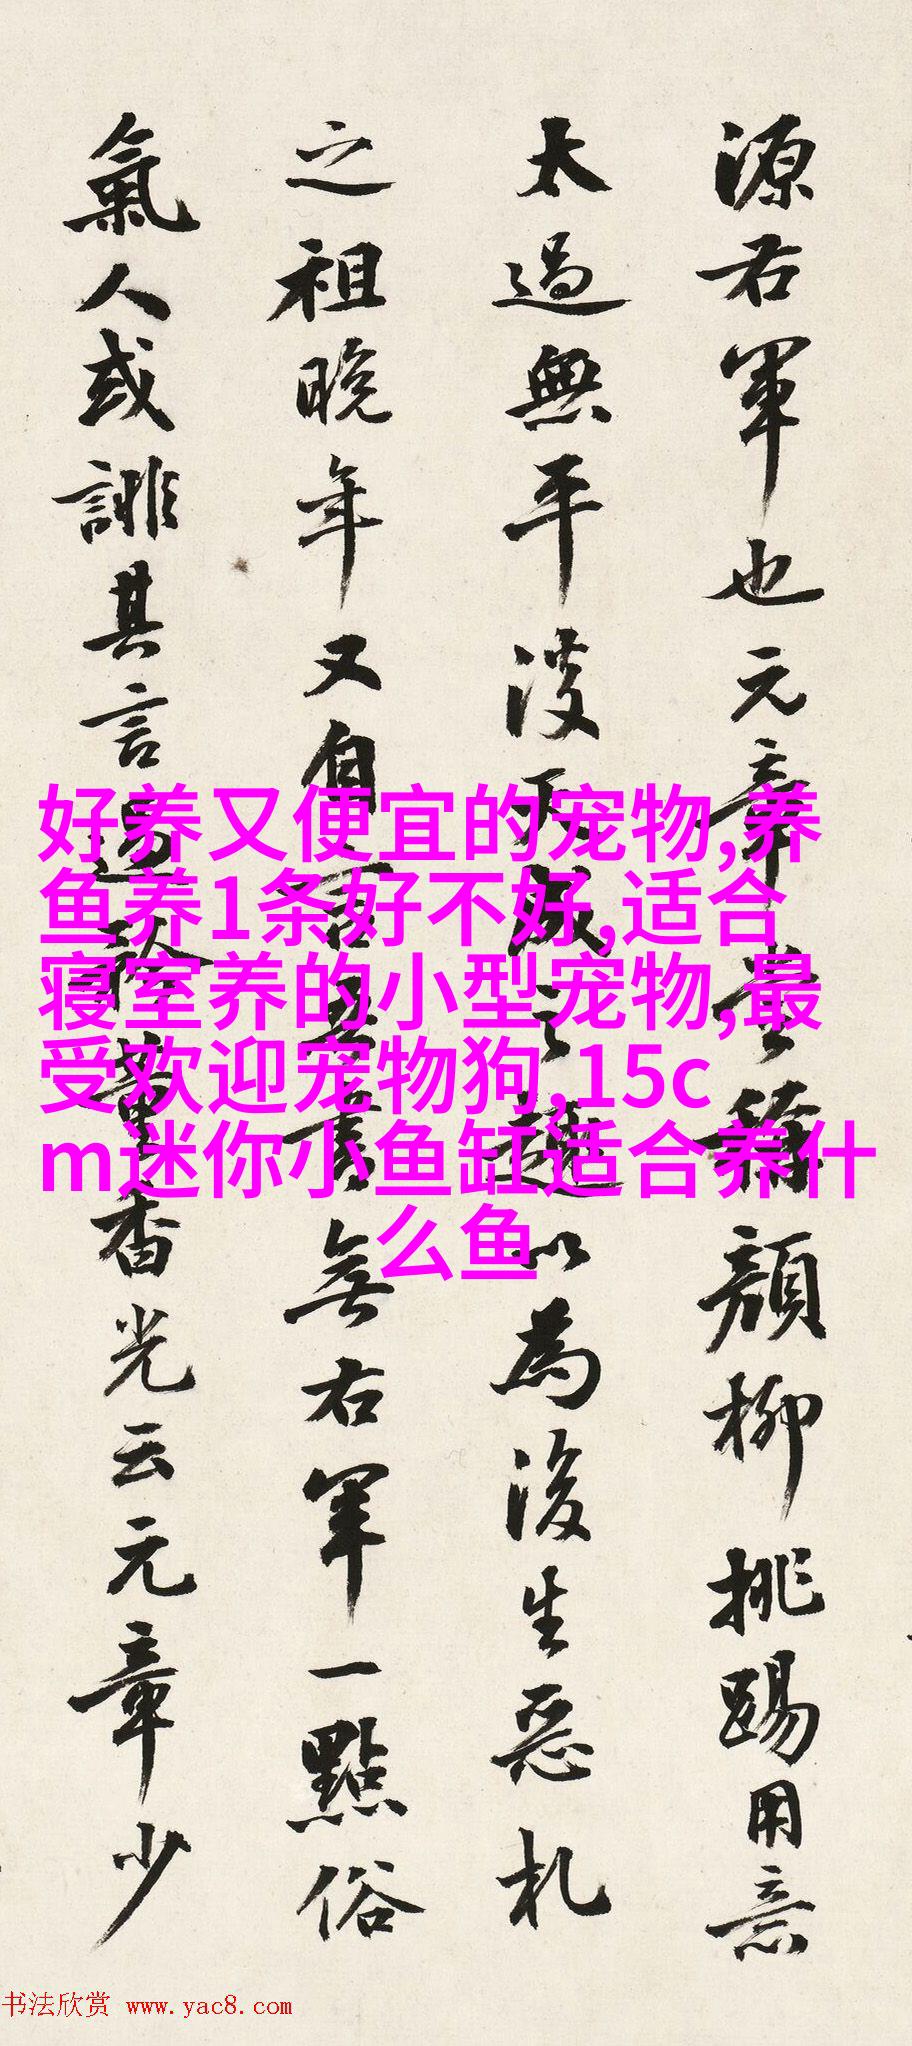 源右軍也元章嘗稱顏柳挑踢用意
太過無平淡天成之趣以為後生惡札
之祖晚年又自言吾書無右軍一點俗
氣人或誹其言過董香光云元章少
好养又便宜的宠物,养
鱼养1条好不好,适合
寝室养的小型宠物,最
受欢迎宠物狗,15c
m迷你小鱼缸适合养什
么鱼
书法欣赏 www.yac8.com